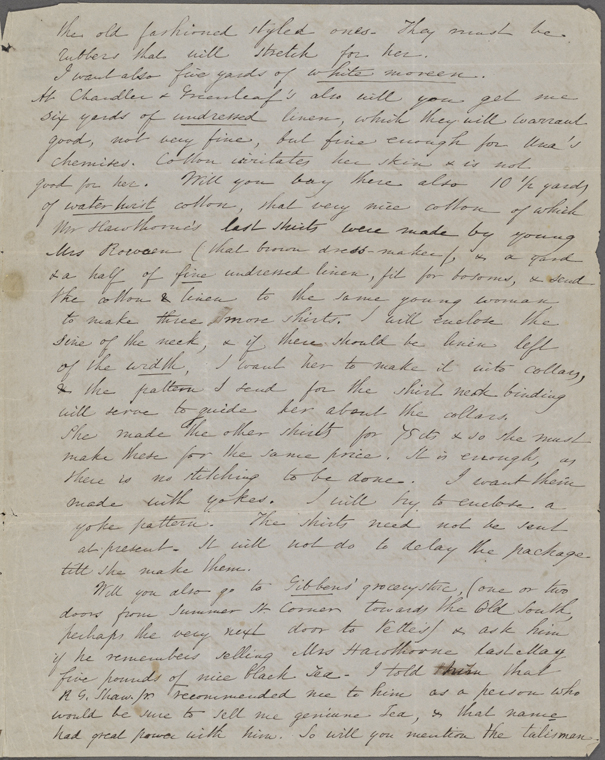 the old fashioned styled ones. They must be
rubbers that will stretch for her.
I want also five yards of white moreen.
At Chandler & Greenleaf's also will you get me
six yards of undressed linen, which they will warrant
good, not very fine, but fine enough for Una's
chemises. Cotton irritates her skin & is not
good for her. Will you buy there also 10 1/2 yards
of water twist cotton, that very nice cotton of which
Mr Hawthorne's last shirts were made by young
Mrs (that brown dress-maker), & a yard
& a half of fine undressed linen, fit for bosoms, & send
the cotton & linen to the same young woman
to make three more shirts. I will enclose the
size of the neck, & if there should be linen left
of the width, I want her to make it into collars,
& the pattern I send for the shirt neck binding
will serve to guide her about the collars.
She made the other shirts for 75 cts & so she must
make these for the same price. It is enough, as
there is no stitching to be done. I want them
made with yokes. I will try to enclose a
yoke pattern. The shirts need not be sent
at present. It will not do to delay the package
till she make them.
Will you also go to Gibbens' grocery store, (one or two
doors from Summer St Corner towards the Old South,
perhaps the very next door to ) & ask him
if he remembers selling Mrs Hawthorne last May
five pounds of nice black Tea. I told him that
R G. Shaw Jr recommended me to him as a person who
would be sure to sell me genuine Tea, & that name
had great power with him. So will you mention the talisman.